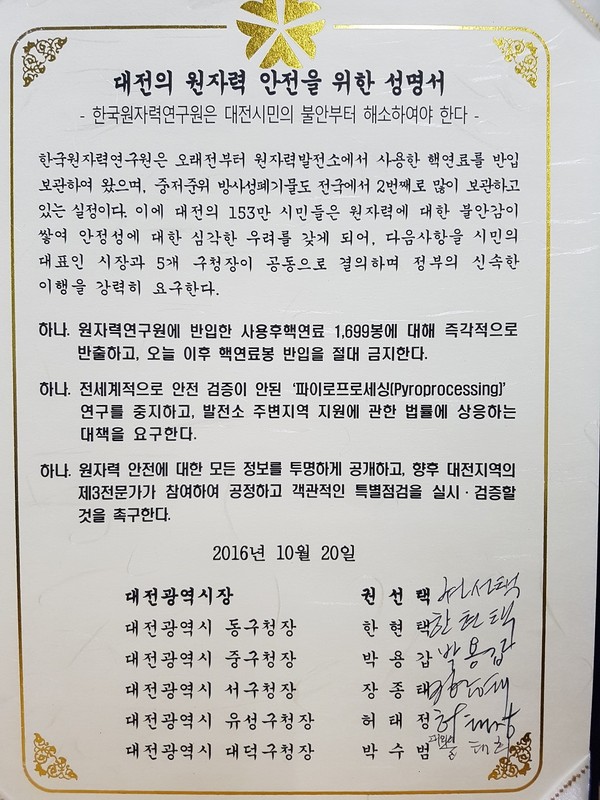 대전의 원자력 안전을 위한 성명서
- 한국원자력연구원은 대전시민의 불안부터 해소하여야 한다 -
한국원자력연구원은 오래전부터 원자력발전소에서 사용한 핵연료를 반입
보관하여 왔으며, 중저준위 방사성폐기물도 전국에서 2번째로 많이 보관하고
있는 실정이다. 이에 대전의 153만 시민들은 원자력에 대한 불안감이
쌓여 안정성에 대한 심각한 우려를 갖게 되어, 다음사항을 시민의
대표인 시장과 5개 구청장이 공동으로 결의하며 정부의 신속한
이행을 강력히 요구한다.
하나. 원자력연구원에 반입한 사용후핵연료 1,699봉에 대해 즉각적으로
반출하고, 오늘 이후 핵연료봉 반입을 절대 금지한다.
하나. 전세계적으로 안전 검증이 안된 '파이로프로세싱(Pyroprocessing)'
연구를 중지하고, 발전소 주변지역 지원에 관한 법률에 상응하는
대책을 요구한다.
하나. 원자력 안전에 대한 모든 정보를 투명하게 공개하고, 향후 대전지역의
제3전문가가 참여하여 공정하고 객관적인 특별점검을 실시·검증할
것을 촉구한다.
2016년 10월 20일
대전광역시장 권 선 택 권선택
대전광역시 동구청장 한 현 택 한현택
대전광역시 중구청장 박 용 갑 박용갑
대전광역시 서구청장 장 종 태
대전광역시 유성구청장 허 태 정 허태정
대전광역시 대덕구청장 박 수 범